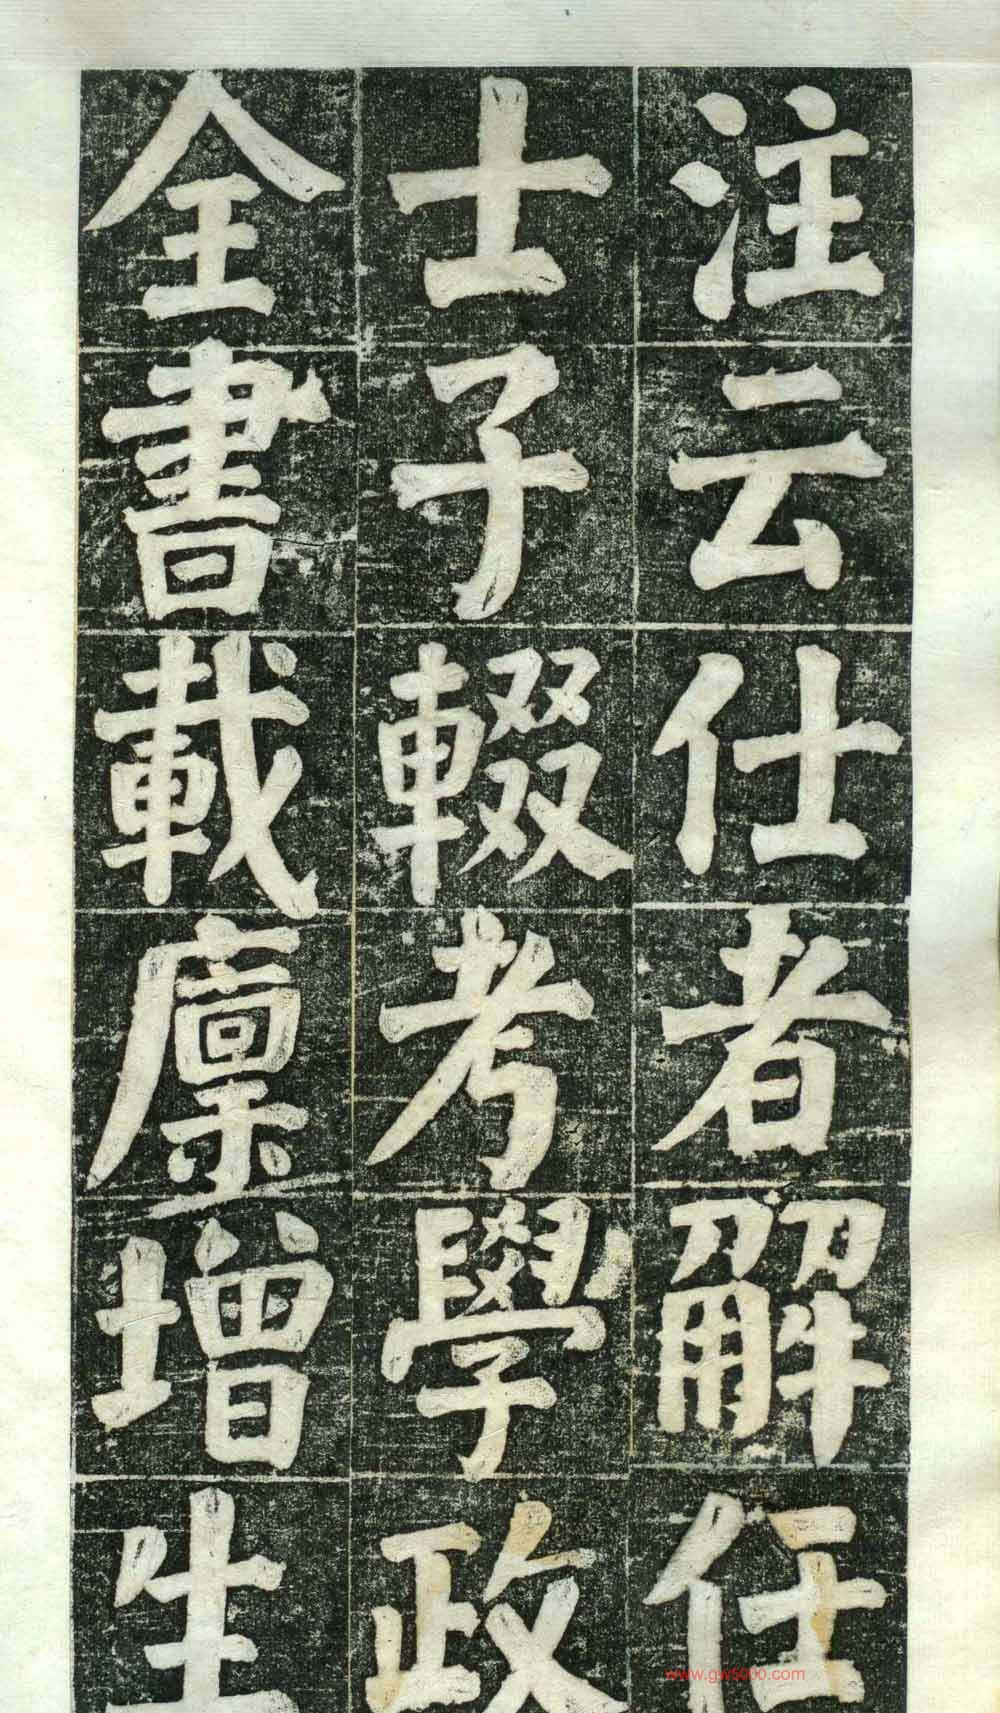 注云仕者解任
士子輟考學政
全書載廩增生
www.gw5000.com